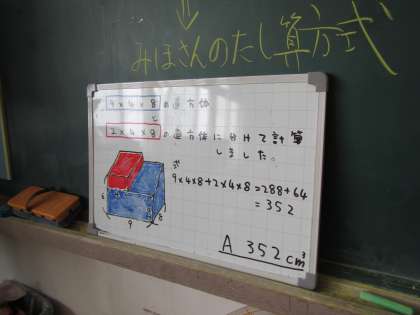 みほさんのたし算方式
9×4×8の直方体
と
2×4×8の直方体に分けて計算
しました。
式
9×4×8+2×4×8=288+64
=352
6
9
8
A 352cm³